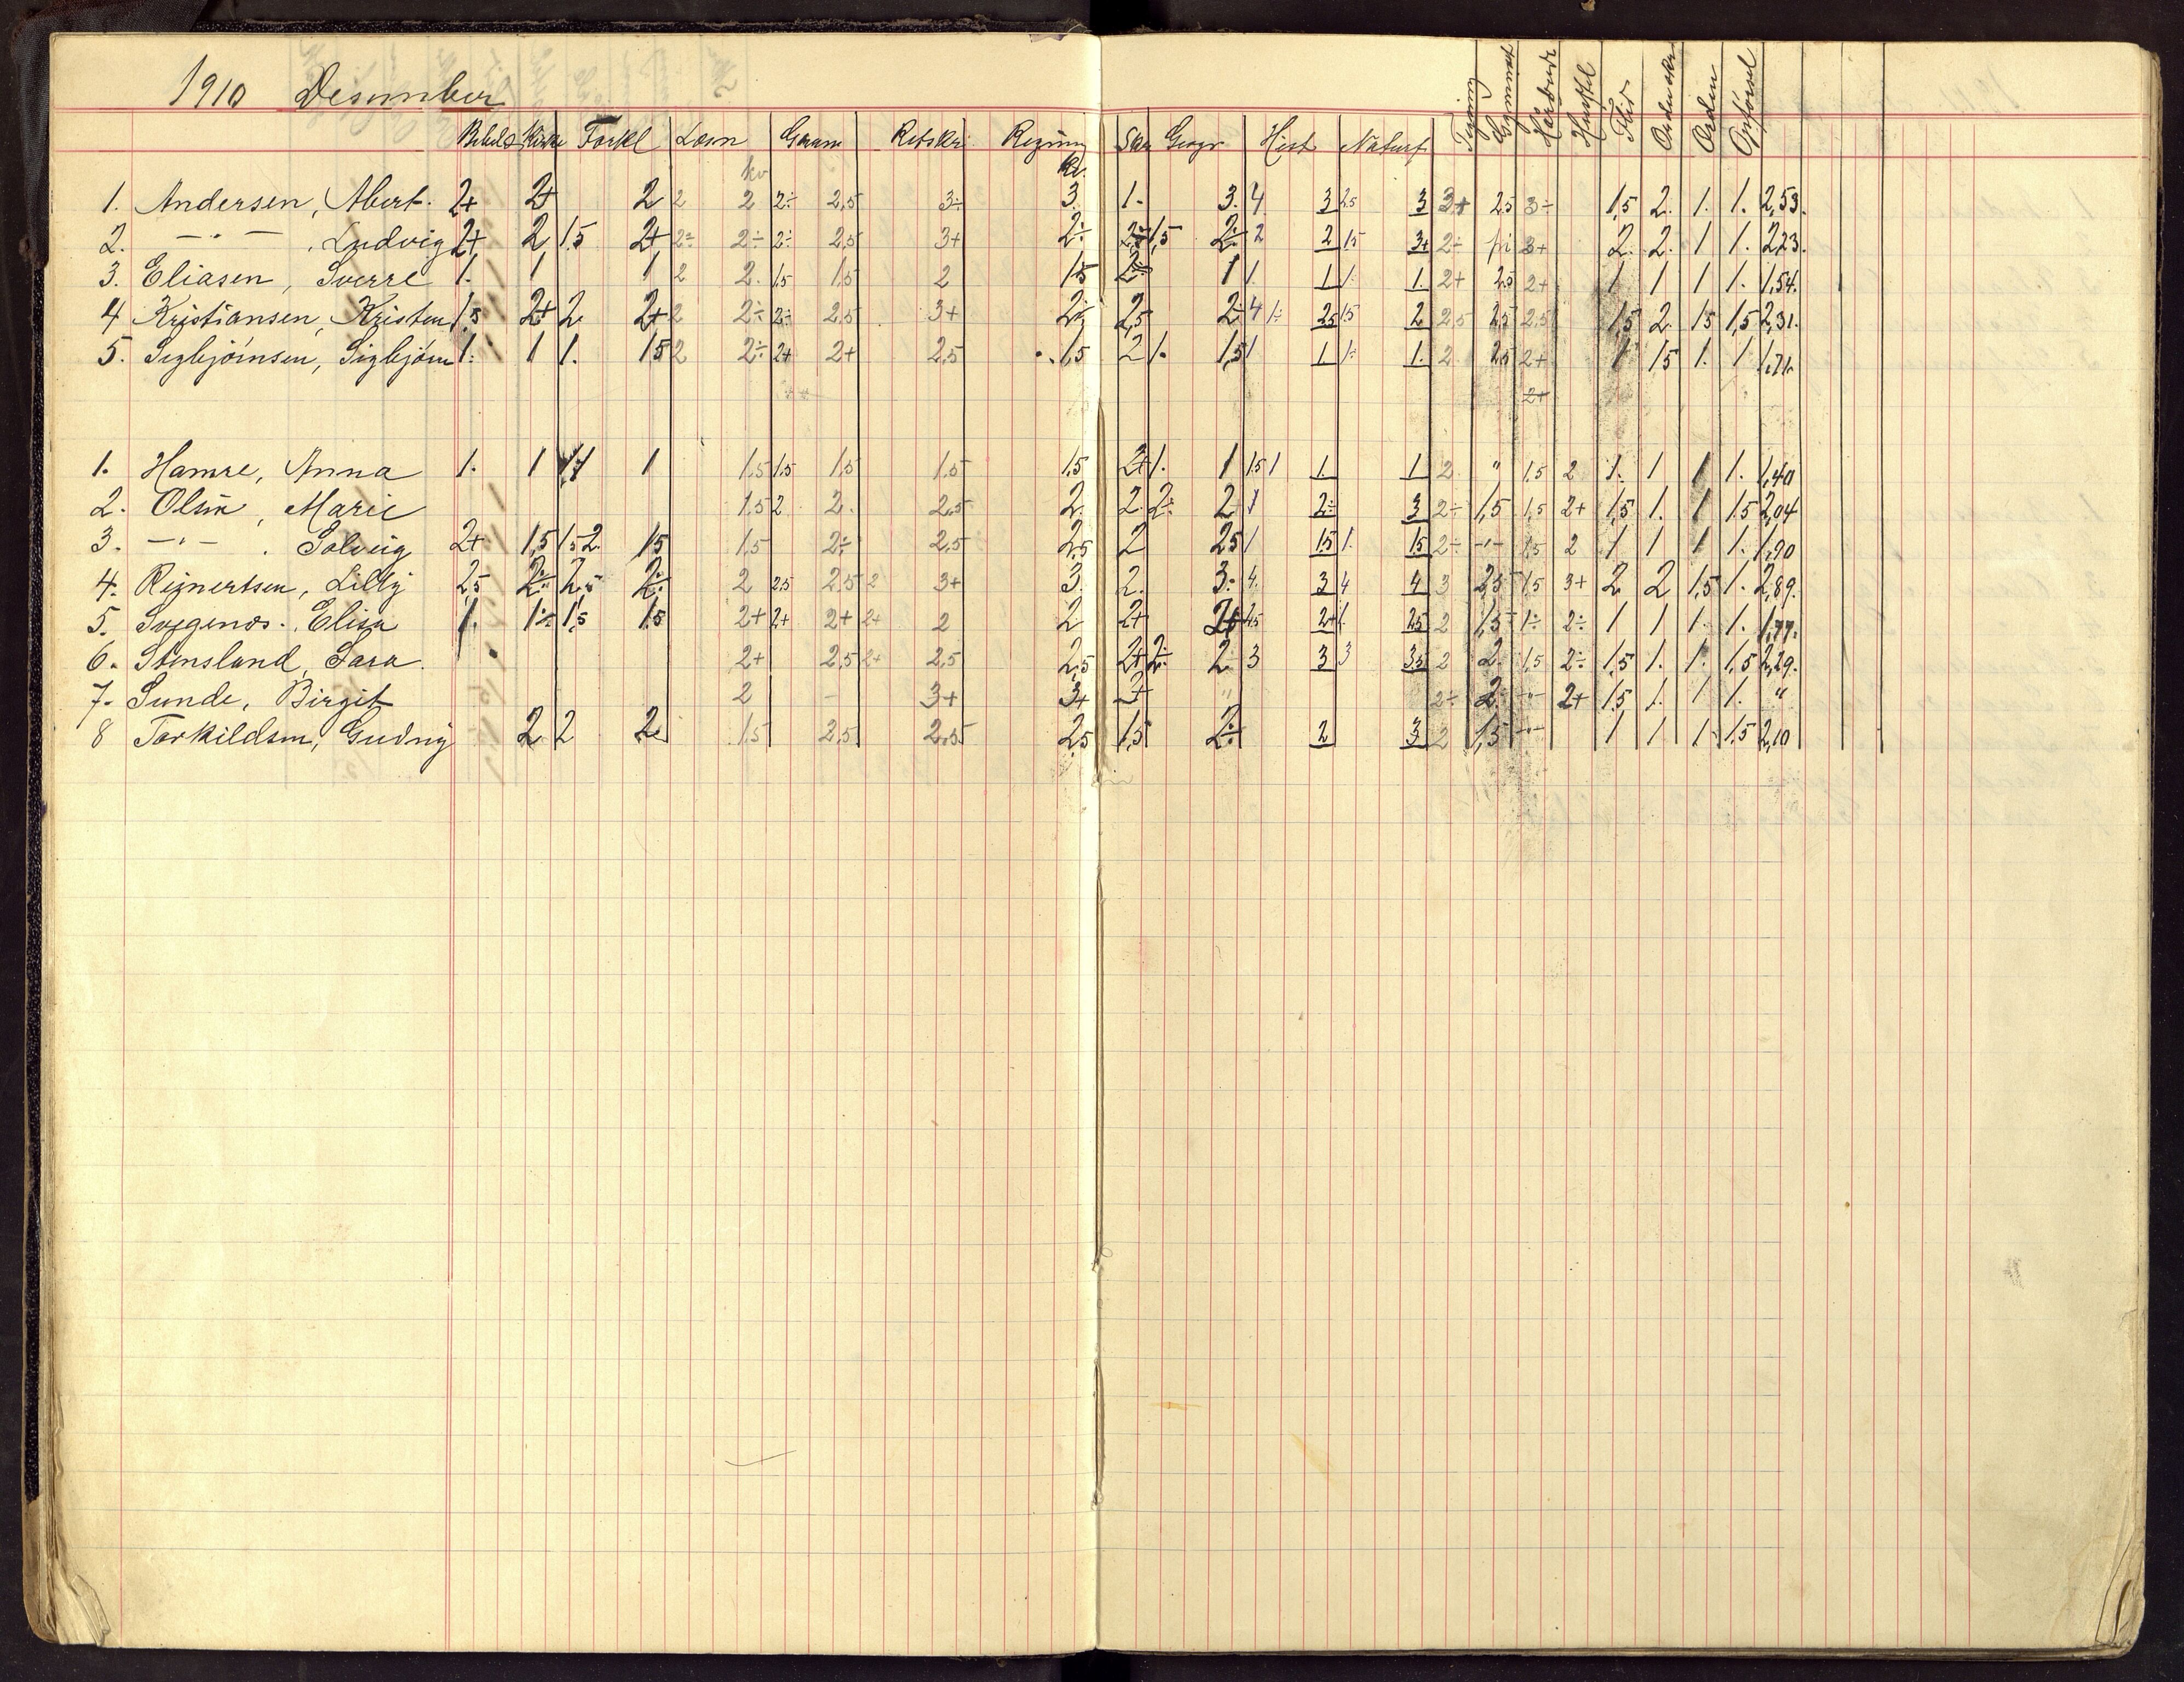 1910 Desember
Bibels Kirke Forkl Læsn Gram Retskr Regning Skr Geogr Hist Naturf Tegning Gymnast Flid Orden Opførsel
kv kv.
1. Andersen, Abert. 2+ 2+ 2 2 2 2÷ 2,5 3÷ 3. 1. 3. 4 3 2,5 3 3+ 2,5 3÷ 1,5 2. 1. 1. 2,53.
2. —"— . Ludvig 2+ 2 1.5 2+ 2÷ 2÷ 2÷ 2,5 3+ 2÷ 1,5 2÷ 2 2 1,5 3+ 2÷ fri 3+ 2. 2. 1 1. 2,23.
3. Eliasen, Sverre 1. 1 1 2 2. 1,5 1,5 2 1,5 2÷ 1 1. 1 1. 1. 2+ 2,5 2+ 1 1 1 1. 1,54.
4 Kristiansen, Kristen 1,5 2+ 2. 2+ 2 2÷ 2÷ 2,5 3+ 2÷ 2,5 2÷ 4 1÷ 2,5 1,5 2 2,5 2,5 2,5 1,5 2. 1,5 1,5 2,31.
5. Sigbjörnsen, Sigbjörn 1. 1 1. 1,5 2 2÷ 2+ 2+ 2,5 1,5 2 1. 1,5 1 1 1÷ 1. 2 2,5 2+ 1 1,5 1. 1 1,71.
2+
1. Hamre, Anna 1. 1 1 1 1,5 1,5 1,5 1,5 1,5 2+ 1. 1 1,5 1 1. 1 2 " 1,5 2 1. 1 1 1. 1,40
2. Olsen, Marie 1,5 2 2. 2,5 2. 2. 2÷ 2 1 2÷ 3 2÷ 1,5 1,5 2+ 1,5 1. 1 1,5 2,04
3. —"— . Solveig 2+ 1,5 1,5 2. 1,5 1,5 2÷ 2,5 2,5 2 2,5 1 1,5 1. 1,5 2÷ —"— 1,5 2 1 1 1 1. 1,90
4. Rejnertsen, Lilly 2,5 2÷ 2,5 2÷ 2 2,5 2,5 2 3+ 3. 2. 3. 4. 3 4 4 3 2,5 1,5 3+ 2 2 1,5 1. 2,89.
5. Svegenös., Elisa 1. 1÷ 1,5 1,5 2+ 2+ 2+ 2+ 2 2 2+ 2+ 4,5 2+ 1. 2,5 2 1,5 1÷ 2÷ 1 1 1. 1. 1,77.
6. Stensland, Sara. 2+ 2,5 2+ 2,5 2,5 2+ 2÷ 2. 3 3 3 3,5 2 2. 1,5 2÷ 1,5 1. 1. 1,5 2,29.
7. Sunde, Birgit 2 — 3+ 3+ 2+ " 2÷ 2. —"— 2+ 1,5 1. 1 1. "
8 Torkildsen, Gudny 2 2 2. 1,5 2,5 2,5 2,5 1,5 2÷ 2 3 2 1,5 —"— 1 1 1. 1,5 2,10